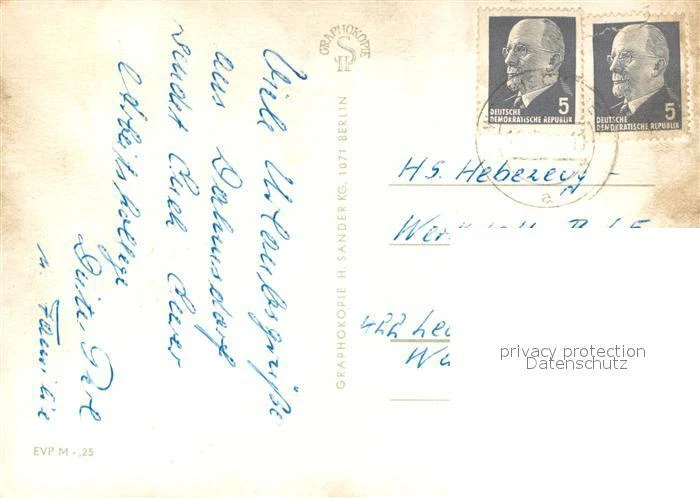 Viele Urlaubsgrüße
aus Dahmsdorf
sendet Euch Euer
Arbeitskollege
Dieter
u. Familie
EVP M -,25
GRAPHOKOPIE
GRAPHOKOPIE H. SANDER KG, 1071 BERLIN
5
DEUTSCHE
DEMOKRATISCHE REPUBLIK
5
DEUTSCHE
DEMOKRATISCHE REPUBLIK
a
HS. Hebezeug-
422
privacy protection
Datenschutz